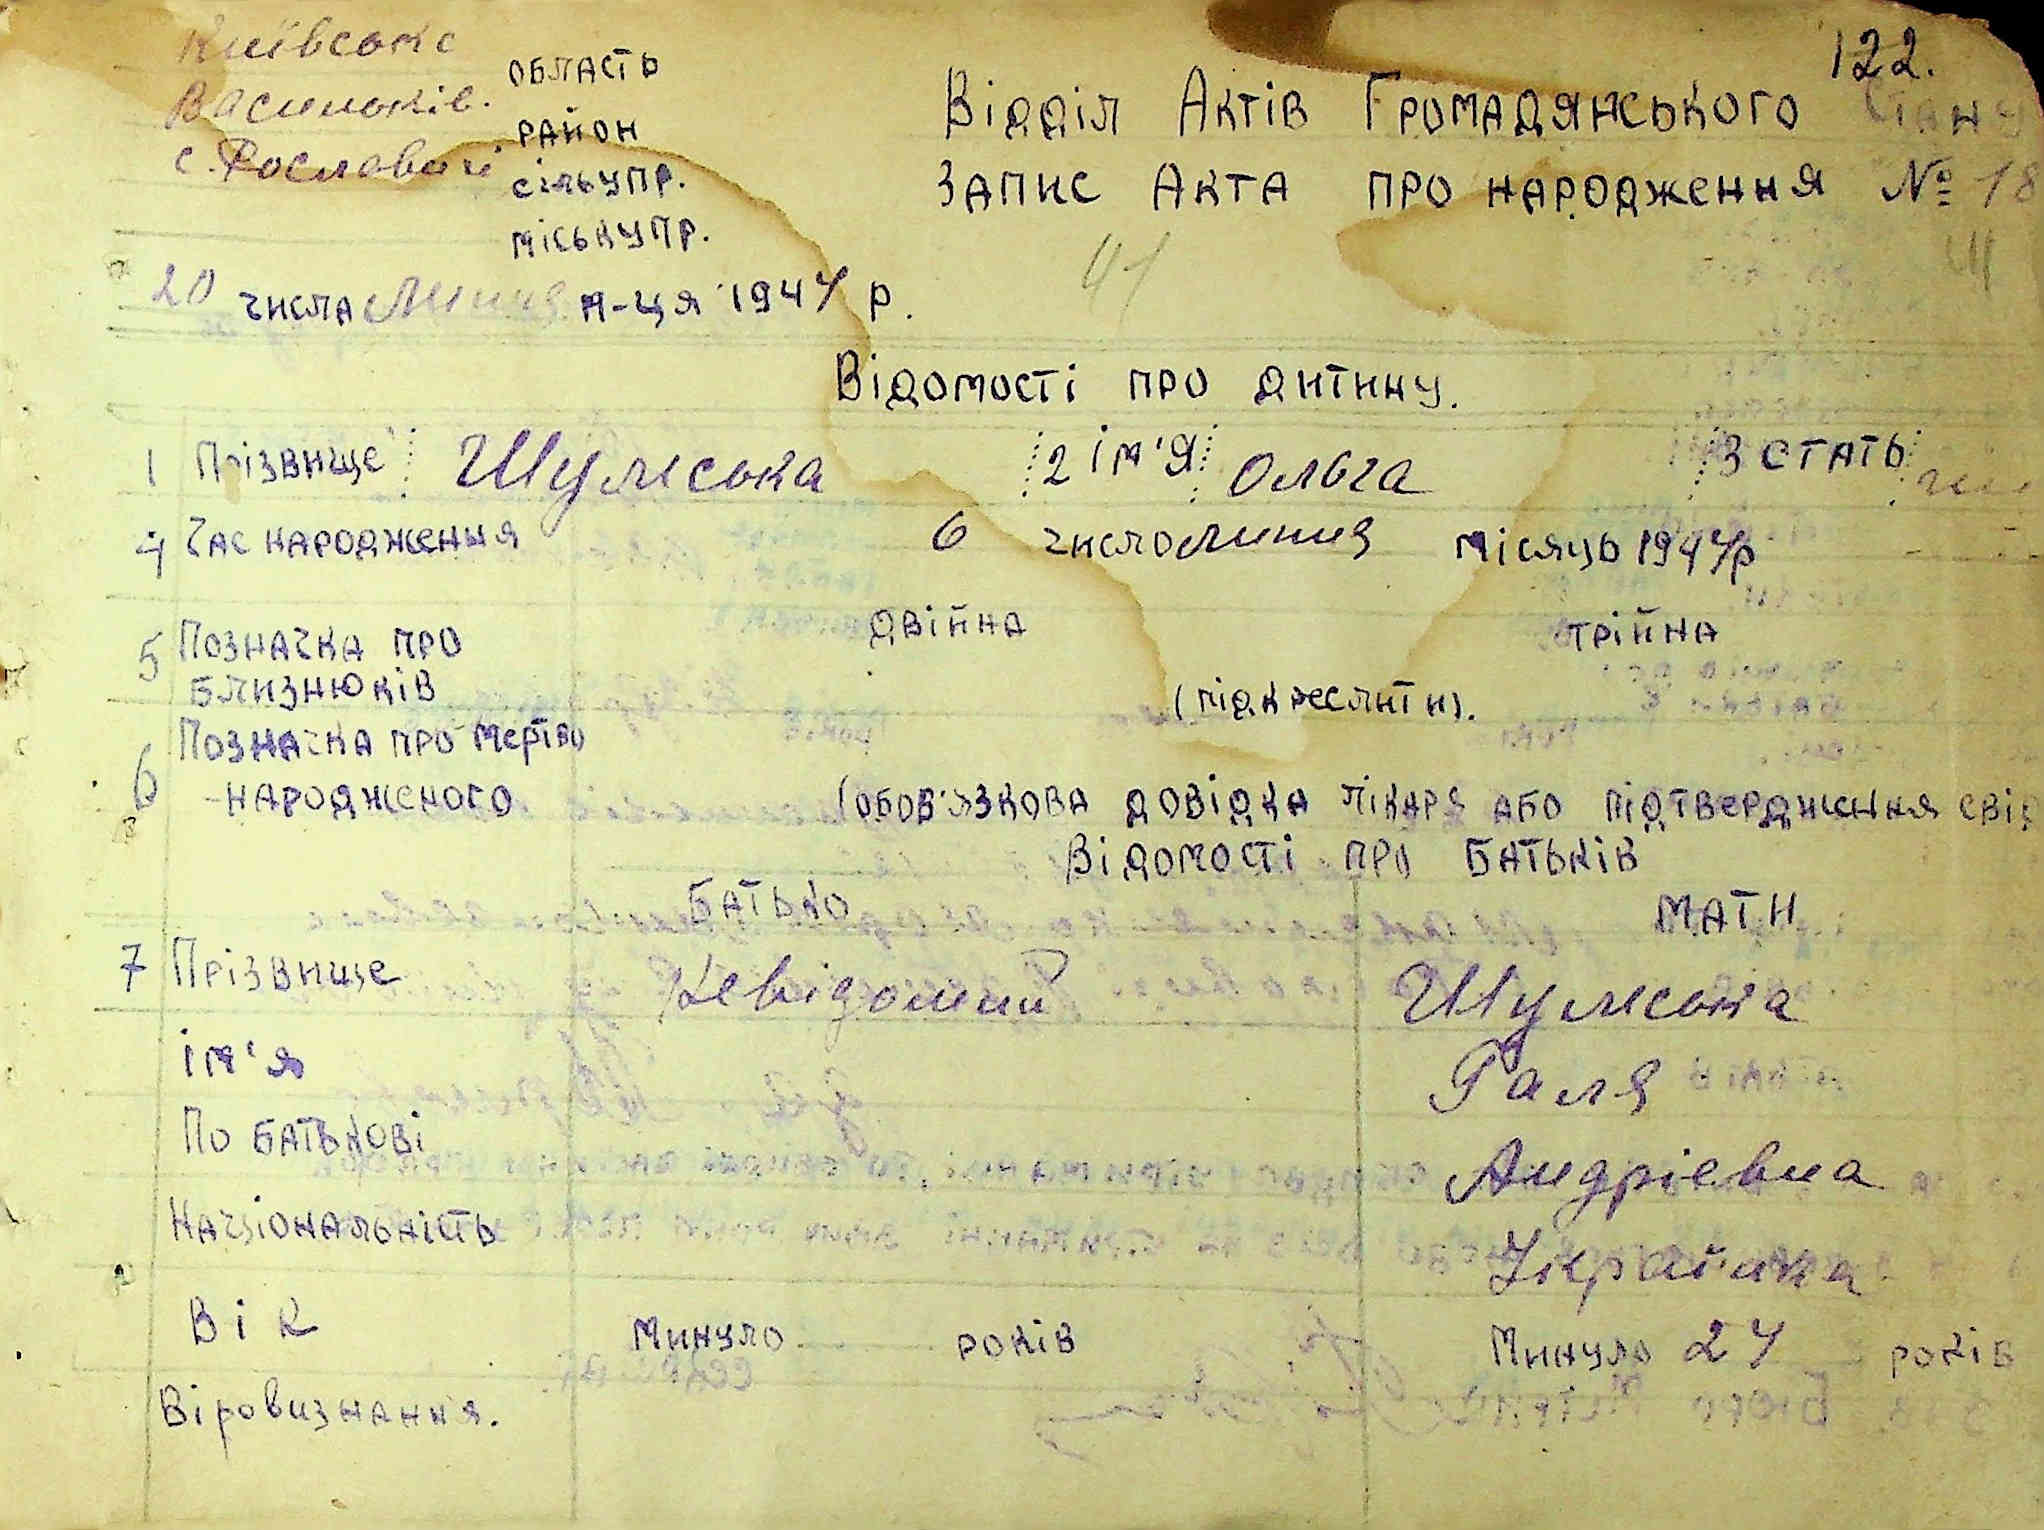 122.
Київська область
Васильків. район
с. Рославичі сільупр.
міськупр.
Відділ Актів Громадянського Стану
Запис Акта про народження № 18
41
20 числа Липня м-ця 1944 р.
Відомості про дитину.
1 Прізвище Шумська 2 ім'я Ольга 3 стать
4 Час народження 6 число липня місяць 1944р
5 Позначка про близнюків двійна трійна
(підкреслити).
6 Позначка про мертво
-народженого (обов'язкова довідка лікаря або підтвердження свід
Відомості про батьків
Батько Мати
7 Прізвище Невідомий Шумська
ім'я Галя
По батькові Андріевна
Національність Українка
Вік Минуло років Минуло 24 років
Віровизнання.